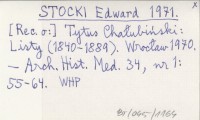 STOCKI Edward 1971.
[Rec. o:] Tytus Chałubiński:
Listy (1840-1889). Wrocław 1970.
— Arch. Hist. Med. 34, nr 1:
55-64. WHP